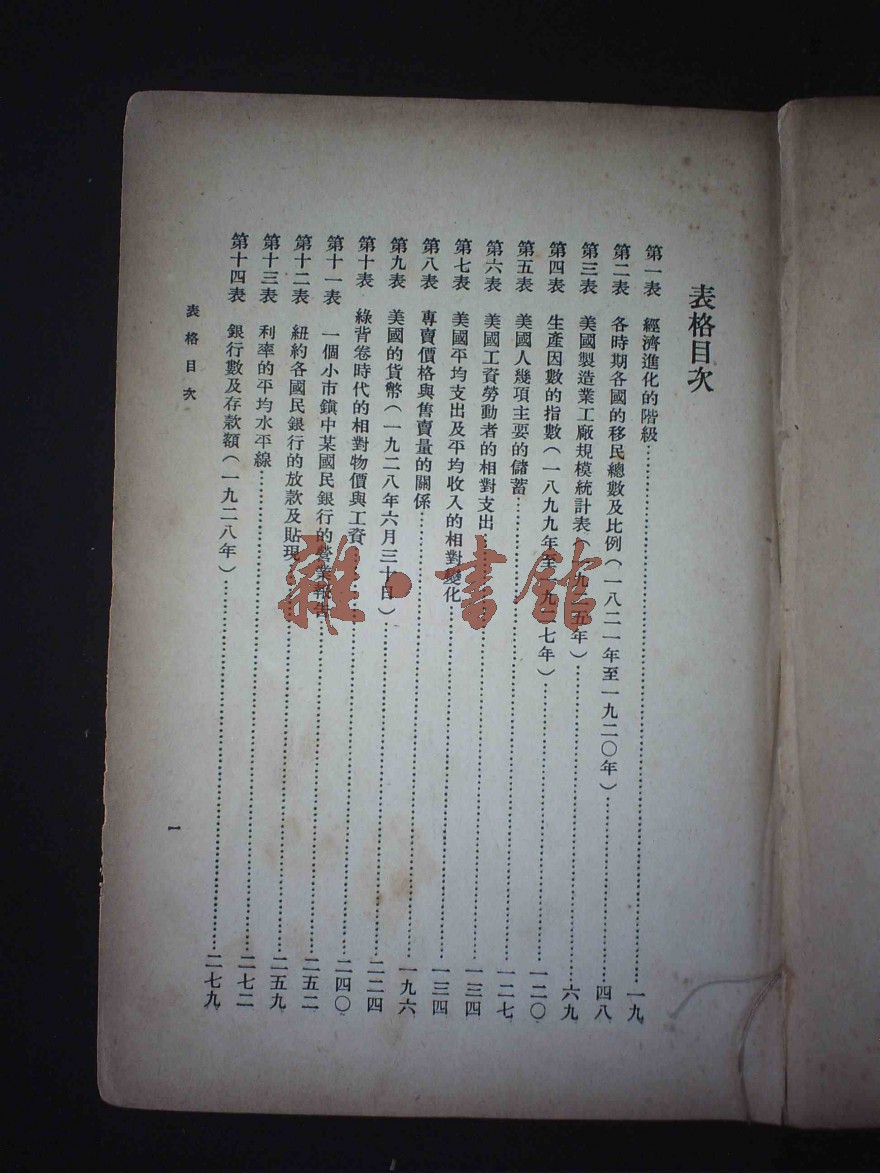 表格目次
第一表 經濟進化的階級……一九
第二表 各時期各國的移民總數及比例(一八二一年至一九二〇年)……四八
第三表 美國製造業工廠規模統計表(一九二五年)……六九
第四表 生產因數的指數(一八九九年至一九二七年)……一二〇
第五表 美國人幾項主要的儲蓄……一二七
第六表 美國工資勞動者的相對支出……一三四
第七表 美國平均支出及平均收入的相對變化……一三四
第八表 專賣價格與售賣量的關係……一九六
第九表 美國的貨幣(一九二八年六月三十日)……二二四
第十表 綠背卷時代的相對物價與工資……二四〇
第十一表 一個小市鎮中某國民銀行的營業報告……二五二
第十二表 紐約各國民銀行的放款及貼現……二五九
第十三表 利率的平均水平線……二七二
第十四表 銀行數及存款額(一九二八年)……二七九
表格目次
一
雜·書館